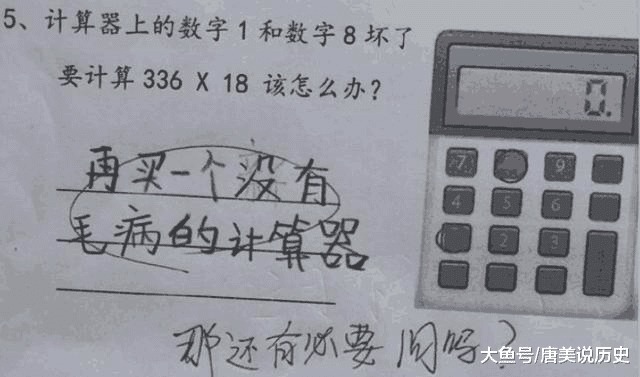 5、计算器上的数字1和数字8坏了
要计算 336 X 18 该怎么办?
再买一个没有
毛病的计算器
那还有必要问吗?
0.
7 9
4 5 6
2 3
大鱼号/唐美说历史